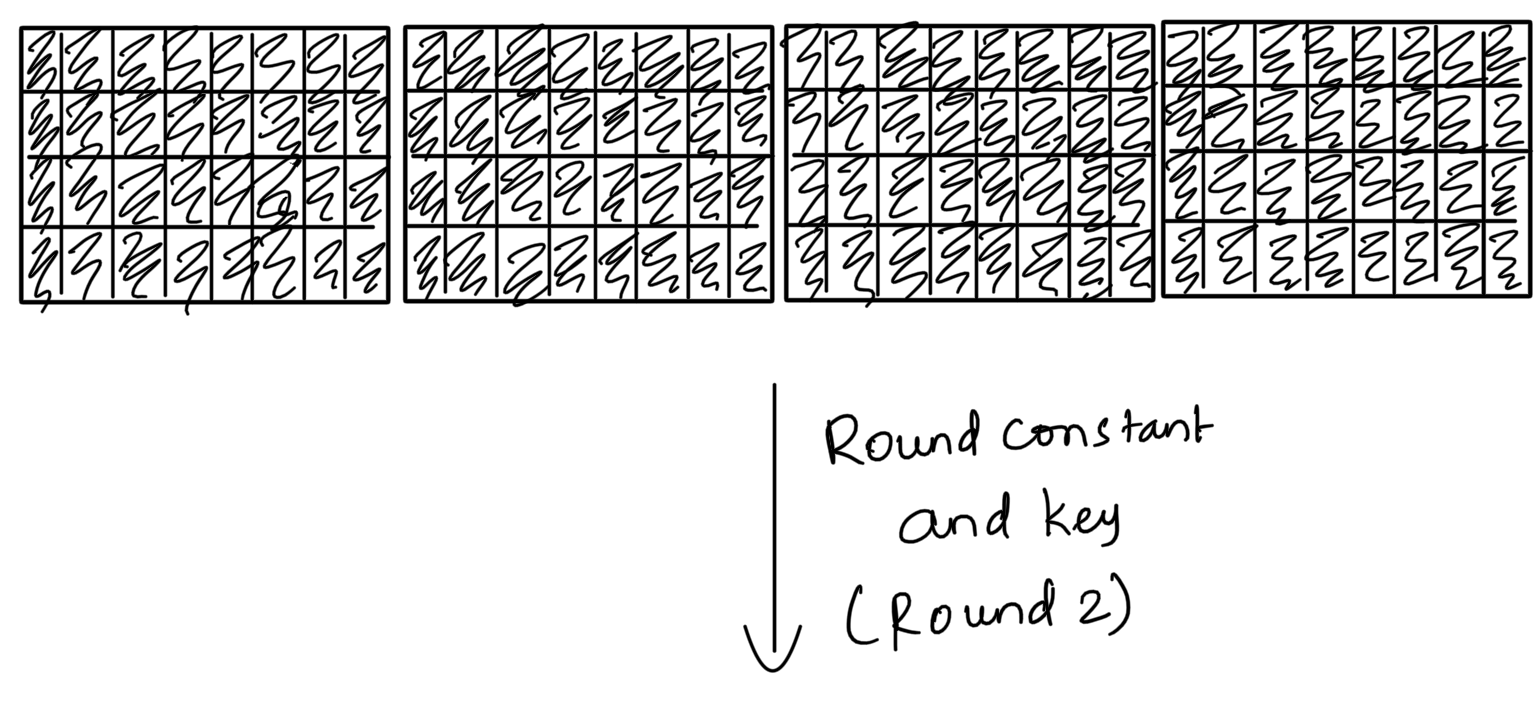 Round constant
and key
(Round 2)